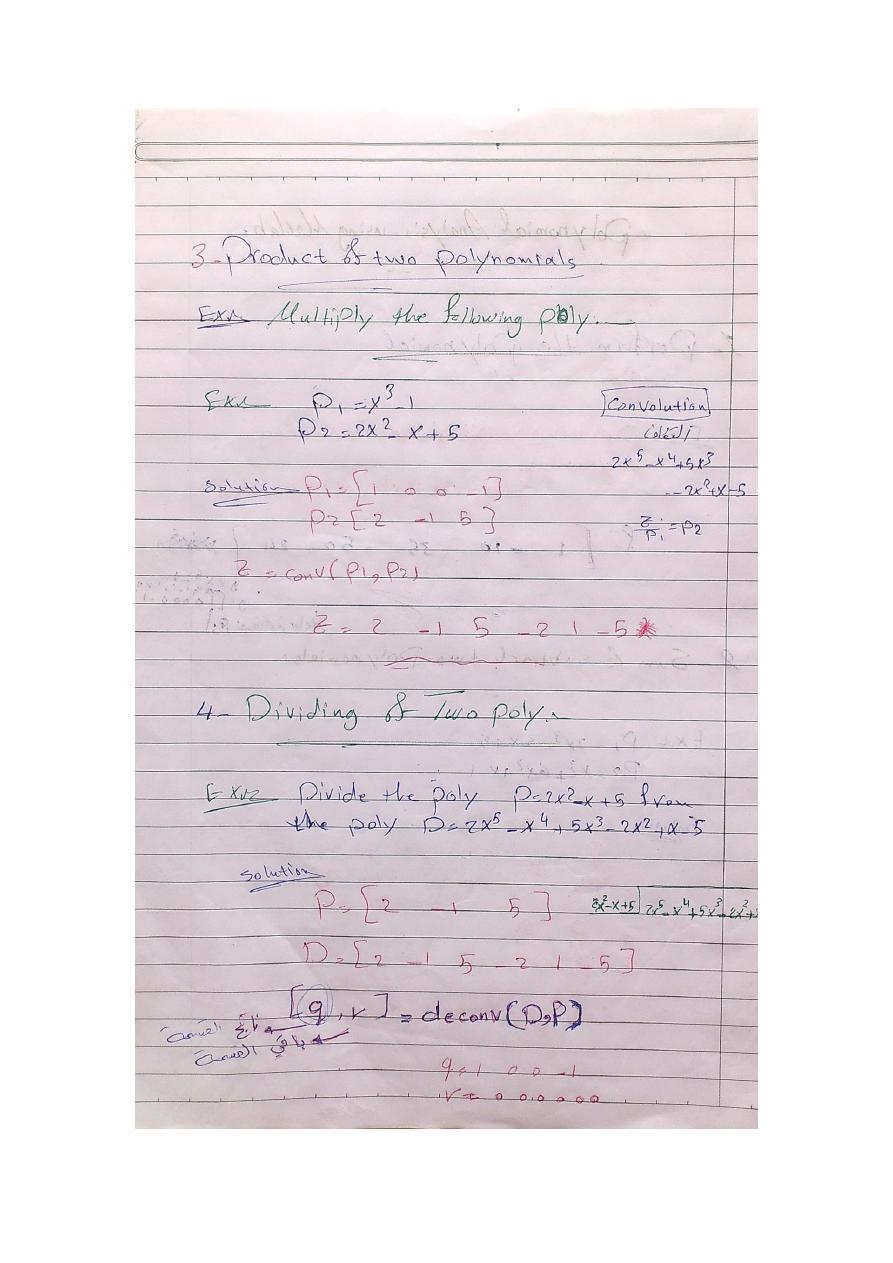 3- Product of two polynomials
Ex1 Multiply the following poly.
Ex1 P1 = x³-1
P2 = 2x² - x + 5
Convolution
التفاف
2x⁵ - x⁴ + 5x³
- 2x² + x - 5
Z/P1 = P2
Solution P1 = [1 0 0 -1]
P2 [2 -1 5]
Z = conv(P1, P2)
Z = 2 -1 5 -2 1 -5
4- Dividing of Two poly.
Ex2 Divide the poly P=2x²-x+5 from
the poly D=2x⁵-x⁴+5x³-2x²+x-5
Solution
P=[2 -1 5]
2x²-x+5 2x⁵-x⁴+5x³-2x²+
D=[2 -1 5 -2 1 -5]
[q, r] = deconv(D,P)
ناتج القسمة
باقي القسمة
q=1 0 0 -1
r= 0 0 0 0 0 0